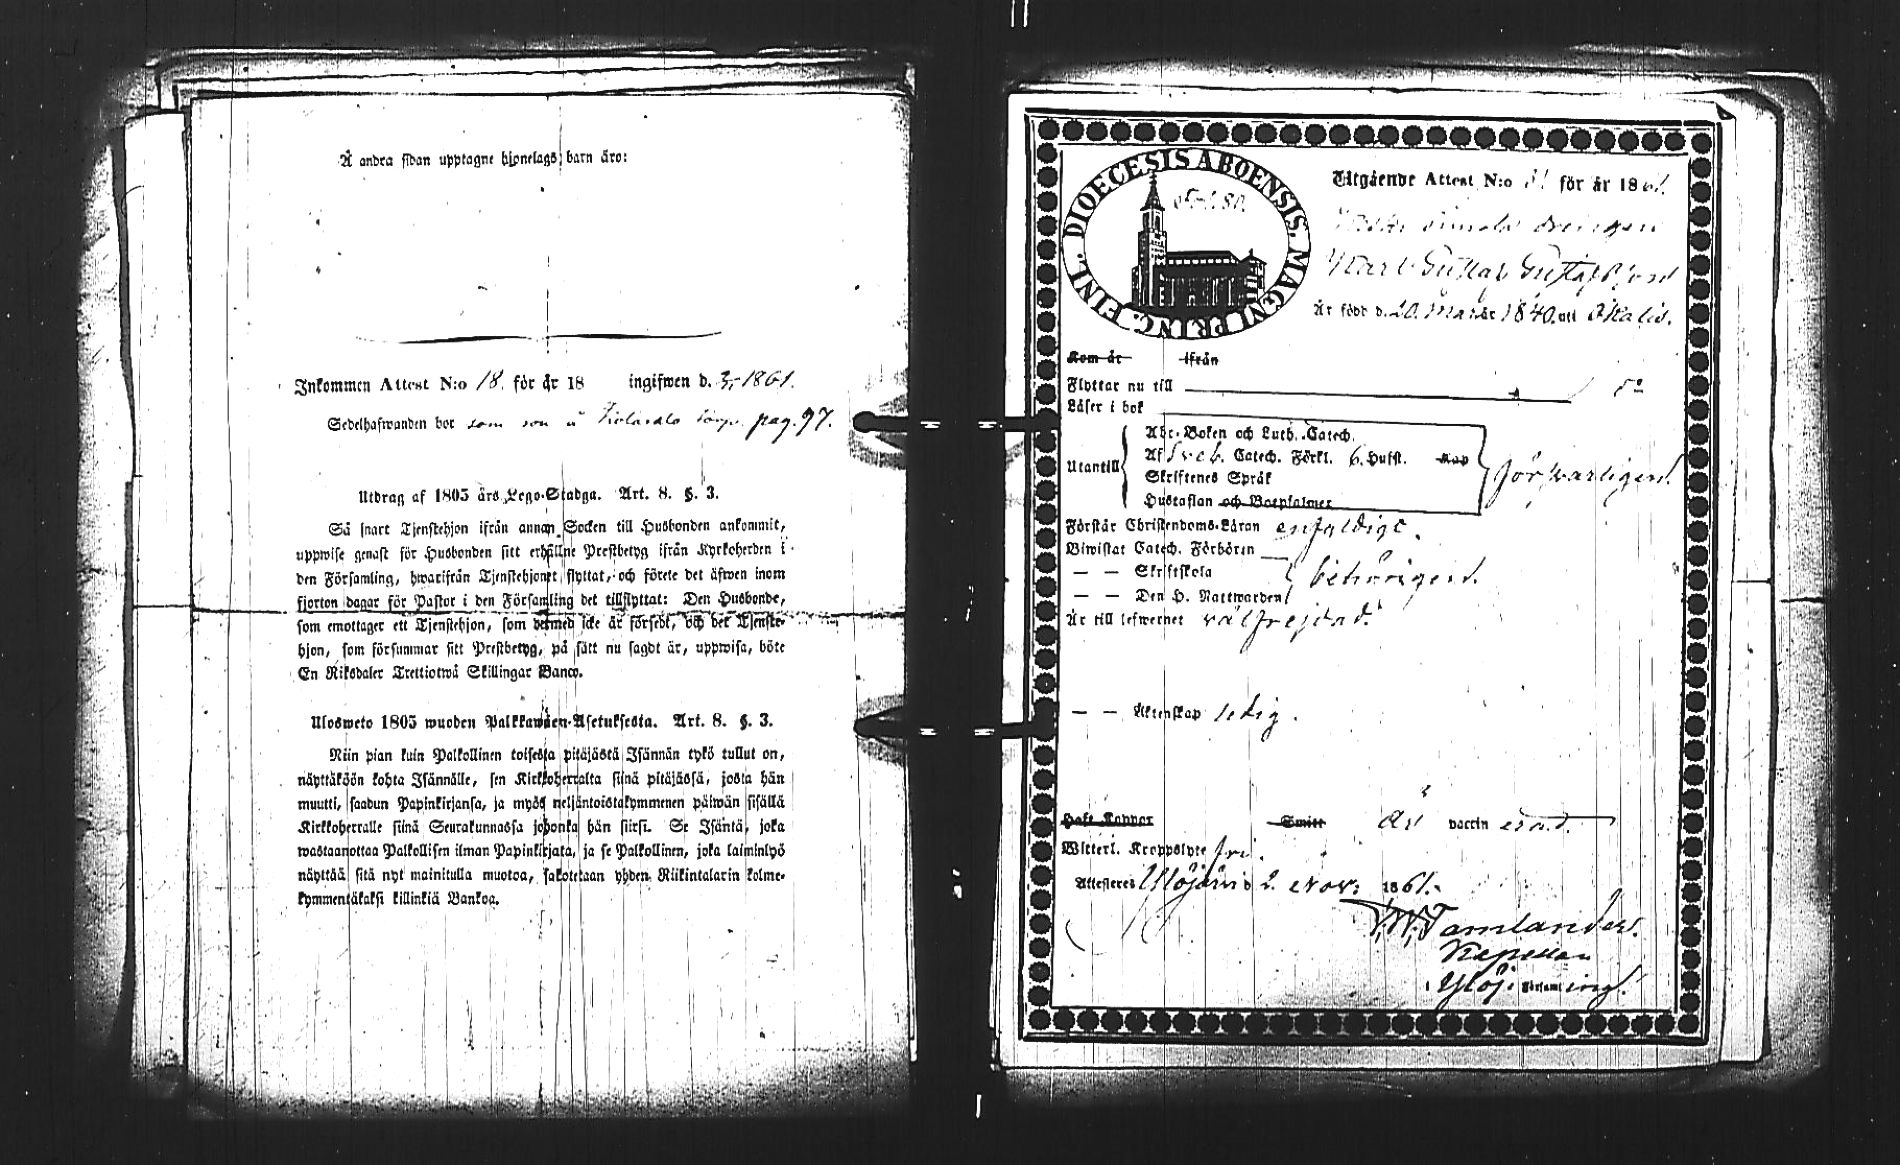 Å andra sidan upptagne hjonelags barn äro:
Inkommen Attest N:o 18. för år 18 ingifwen d. 3/- 1861.
Sedelhafwanden bor som son å torp. pag. 97.
Utdrag af 1805 års Lego-Stadga. Art. 8. §. 3.
Så snart Tjenstehjon ifrån annan Socken till Husbonden ankommit,
uppwise genast för Husbonden sitt erhållne Prestbetyg ifrån Kyrkoherden i
den Församling, hwarifrån Tjenstehjonet flyttat, och förete det äfwen inom
fjorton dagar för Pastor i den Församling det tillflyttat: Den Husbonde,
som emottager ett Tjenstehjon, som dermed icke är försedt, och det Tjenste-
hjon, som försummar sitt Prestbetyg, på sätt nu sagdt är, uppwisa, böte
En Riksdaler Trettiotwå Skillingar Banco.
Ulosweto 1805 wuoden Palkkawäen-Asetuksesta. Art. 8. §. 3.
Niin pian kuin Palkollinen toisesta pitäjästä Isännän tykö tullut on,
näyttäköön kohta Isännälle, sen Kirkkoherralta siinä pitäjässä, josta hän
muutti, saadun Papinkirjansa, ja myös neljäntoistakymmenen päiwän sisällä
Kirkkoherralle siinä Seurakunnassa johonka hän siirsi. Se Isäntä, joka
wastaanottaa Palkollisen ilman Papinkirjata, ja se Palkollinen, joka laiminlyö
näyttää sitä nyt mainitulla muotoa, sakotetaan yhden Riikintalarin kolme-
kymmentäkaksi killinkiä Bankoa.
DIOECESIS ABOENSIS. MAGNI PRINC. FINL.
Fol. 80.
Utgående Attest N:o 31 för år 1861.
drengen
Karl Gustaf Gustafsson
Är född d. 20. Mars år 1840. uti Ikalis.
Kom år ifrån
Flyttar nu till
Läser i bok
Utantill
Abc-Boken och Luth. Catech.
Af Sveb. Catech. Förkl. 6. Hufst. Kap
Skriftenes Språk
Hustaflan och Botpsalmer
försvarligen.
Förstår Christendoms-Läran enfaldigt.
Biwistat Catech. Förhören
— — Skriftskola
— — Den H. Nattwarden
behörigen.
Är till lefwernet välfrejdad.
— — Äktenskap ledig.
Haft Koppor Smitt är vaccinerad.
Witterl. Kroppslyte fri.
Attesteres Ylöjärvi 2. Nov: 1861.
W. Tamlander.
Kapellan
i Ylöj. Församling.